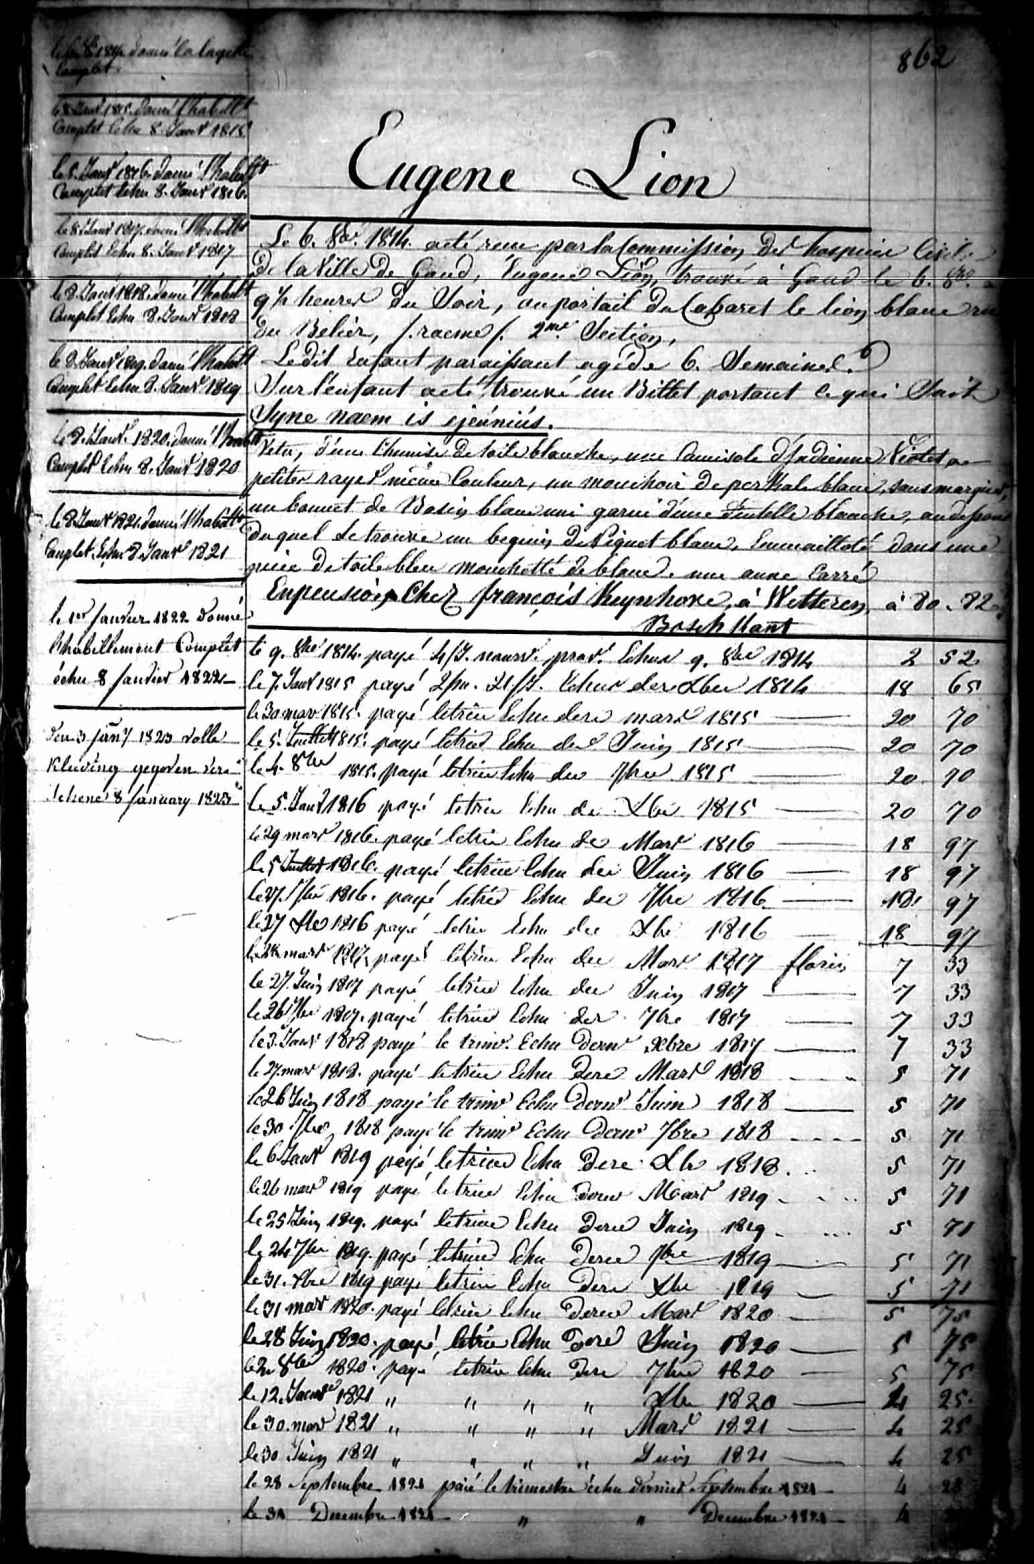 862
Eugene Lion
Le 6. 8bre 1814. acté reçu par la Commission des hospices Civils
de la Ville de Gand, Eugene Lion, trouvé à Gand le 6. 8bre a
9 ½ heures du Soir, au portail du Cabaret le lion blanc rue
du Belier, /: racme :/ 2me Section,
Ledit enfant paraissant agé de 6. Semaines.
Sur l'enfant acté trouvé un Billet portant ce qui Suit
Syne naem is ejeúniús.
Vetu, d'une Chemise de toile blanche, une Camisole d'Indienne Violet a
petites rayes même Couleur, un mouchoir de perkale blanc, sans marques,
un bonnet de Basin blanc uni garni d'une dentelle blanche, au dessous
duquel se trouve un beguin de Piquet blanc, Emmailloté dans une
piece de toile bleu mouchetté de blanc. une aune Carré
Enpension Chez françois Keynhove, à Wetteren, à 80.-82
Bosch Kant
le 9. 8bre 1814. payé nourr. Echus 9. 8bre 1814 2 52
le 7. Janr 1815 payé 2/m. 21/J. Echus der Xbre 1814 18 65
le 30 mars 1815. payé letrim Echu dere mars 1815 20 70
le 5. Juillet 1815. payé letrim Echu der Juin 1815 20 70
le 4. 8bre 1815. payé letrim Echu der 7bre 1815 20 70
le 5. Janr 1816 payé letrim Echu der Xbre 1815 20 70
le 29 mars 1816. payé letrim Echu der Mars 1816 18 97
le 5 Juillet 1816. payé letrim Echu der Juin 1816 18 97
le 27. 7bre 1816. payé letrim Echu der 7bre 1816 18 97
le 27 Xbre 1816 payé letrim Echu der Xbre 1816 18 97
le 28 mars 1817. payé letrim Echu der Mars 1817 florins 7 33
le 27 Juin 1817 payé letrim Echu der Juin 1817 7 33
le 26 7bre 1817. payé letrim Echu der 7bre 1817 7 33
le 3. Janr 1818 payé le trim. Echu dernr Xbre 1817 7 33
le 27 mars 1818. payé letrim Echu dere Mars 1818 5 71
le 26 Juin 1818 payé le trimr Echu dernr Juin 1818 5 71
le 30 7bre 1818 payé le trimr Echu dernr 7bre 1818 5 71
le 6 Janr 1819 payé letrim Echu dere Xbre 1818 5 71
le 26 mars 1819 payé letrim Echu dernr Mars 1819 5 71
le 25 Juin 1819. payé letrim Echu dere Juin 1819 5 71
le 24 7bre 1819. payé letrim Echu dere 7bre 1819 5 71
le 31. Xbre 1819 payé letrim Echu dere Xbre 1819 5 71
le 31 mars 1820. payé letrim Echu dere Mars 1820 5 75
le 28 Juin 1820. payé letrim Echu dere Juin 1820 5 75
le 2. 8bre 1820. payé letrim Echu dere 7bre 1820 5 75
le 12. Janvr 1821 " " " " Xbre 1820 4 25
le 30. mars 1821 " " " " Mars 1821 4 25
le 30 Juin 1821 " " " " Juin 1821 4 25
le 28 Septembre 1821 paié le trimestre échu dernier Septembre 1821 4
le 31 Decembre 1821 " " Decembre 1821 4
donné la layette
Complet.
le 8 Janr 1815. donné l'habillt
Complet Echu 8. Janr 1815
le 8. Janr 1816. donné l'habillt
Complet Echu 8. Janr 1816.
le 8 Janr 1817. donné l'habillt
Complet Echu 8. Janr 1817
le 8 Janr 1818. donné l'habillt
Complet Echu 8. Janr 1818
le 8. Janr 1819. donné l'habillt
Complet Echu 8. Janr 1819
le 8. Janr 1820. donné l'habillt
Complet Echu 8. Janr 1820
le 8 Janr 1821. donné l'habillt
Complet. Echu 8 Janr 1821
le 1er Janvier 1822 donné
l'habillement Complet
échu 8 janvier 1822
den 3 janry 1823 volle
kleeding gegeven vers
schene 8 january 1823